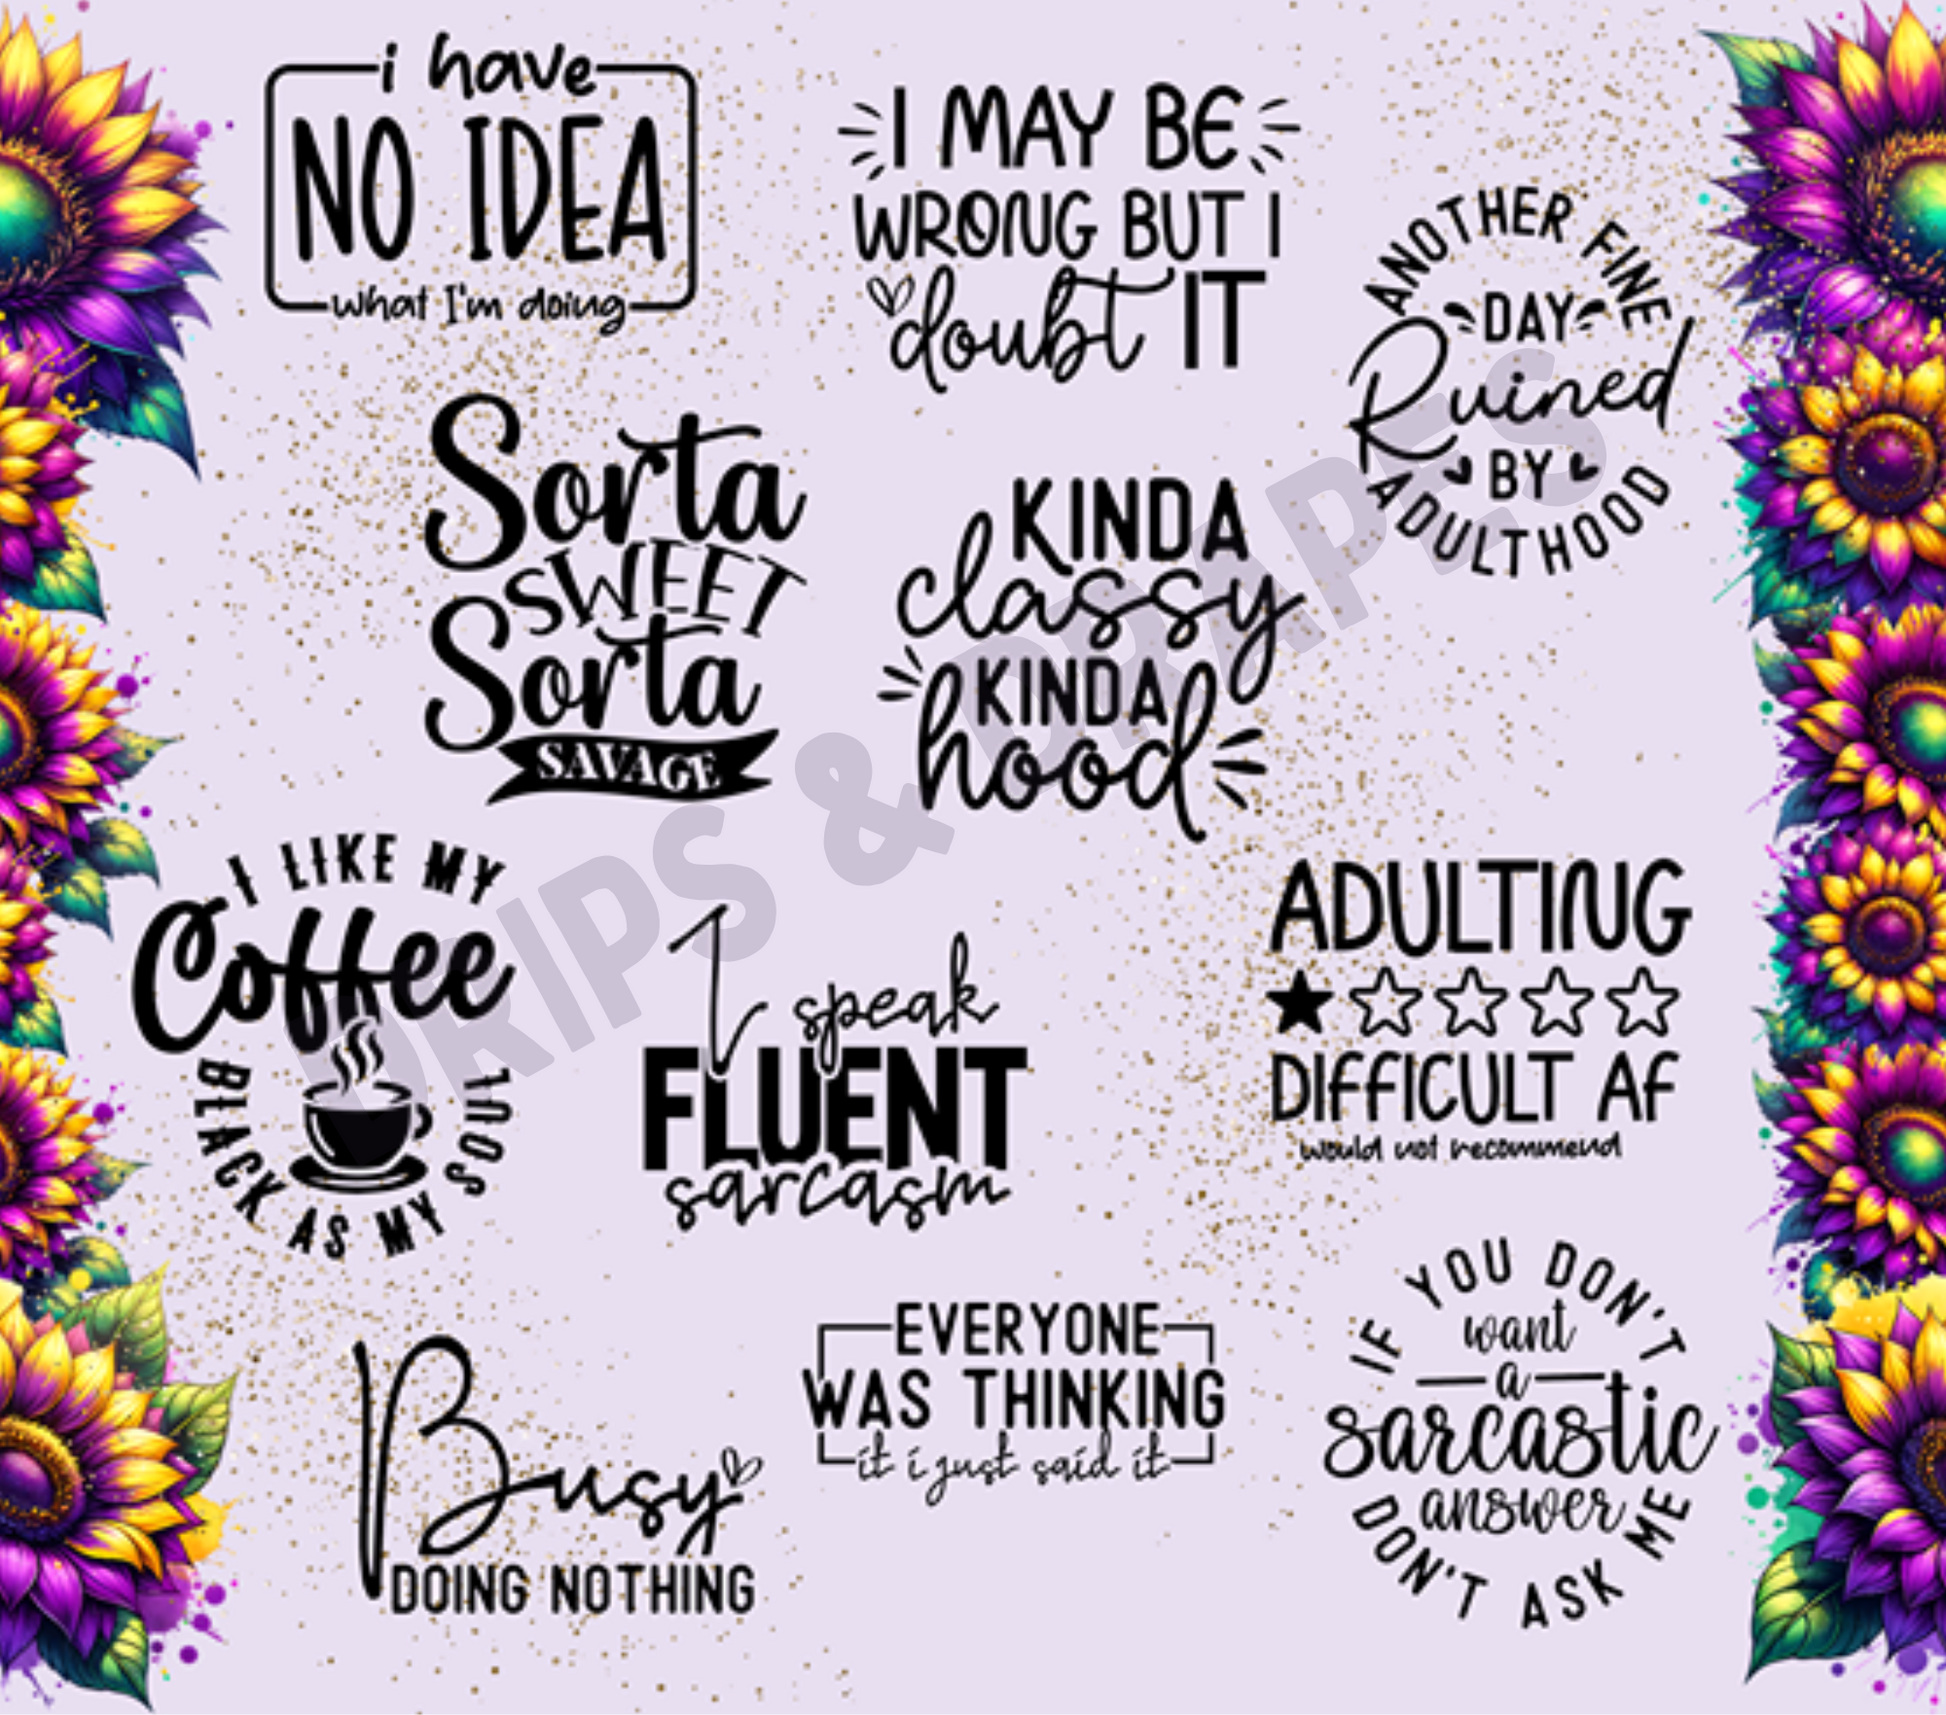 i have
NO IDEA
what I'm doing
I MAY BE
WRONG BUT I
doubt IT
ANOTHER FINE
DAY
Ruined
BY
ADULTHOOD
Sorta
SWEET
Sorta
SAVAGE
KINDA
classy
KINDA
hood
I LIKE MY
Coffee
BLACK AS MY SOUL
I speak
FLUENT
sarcasm
ADULTING
DIFFICULT AF
would not recommend
Busy
DOING NOTHING
EVERYONE
WAS THINKING
it i just said it
IF YOU DON'T
want
a
sarcastic
answer
DON'T ASK ME
DRIPS & DRAPES